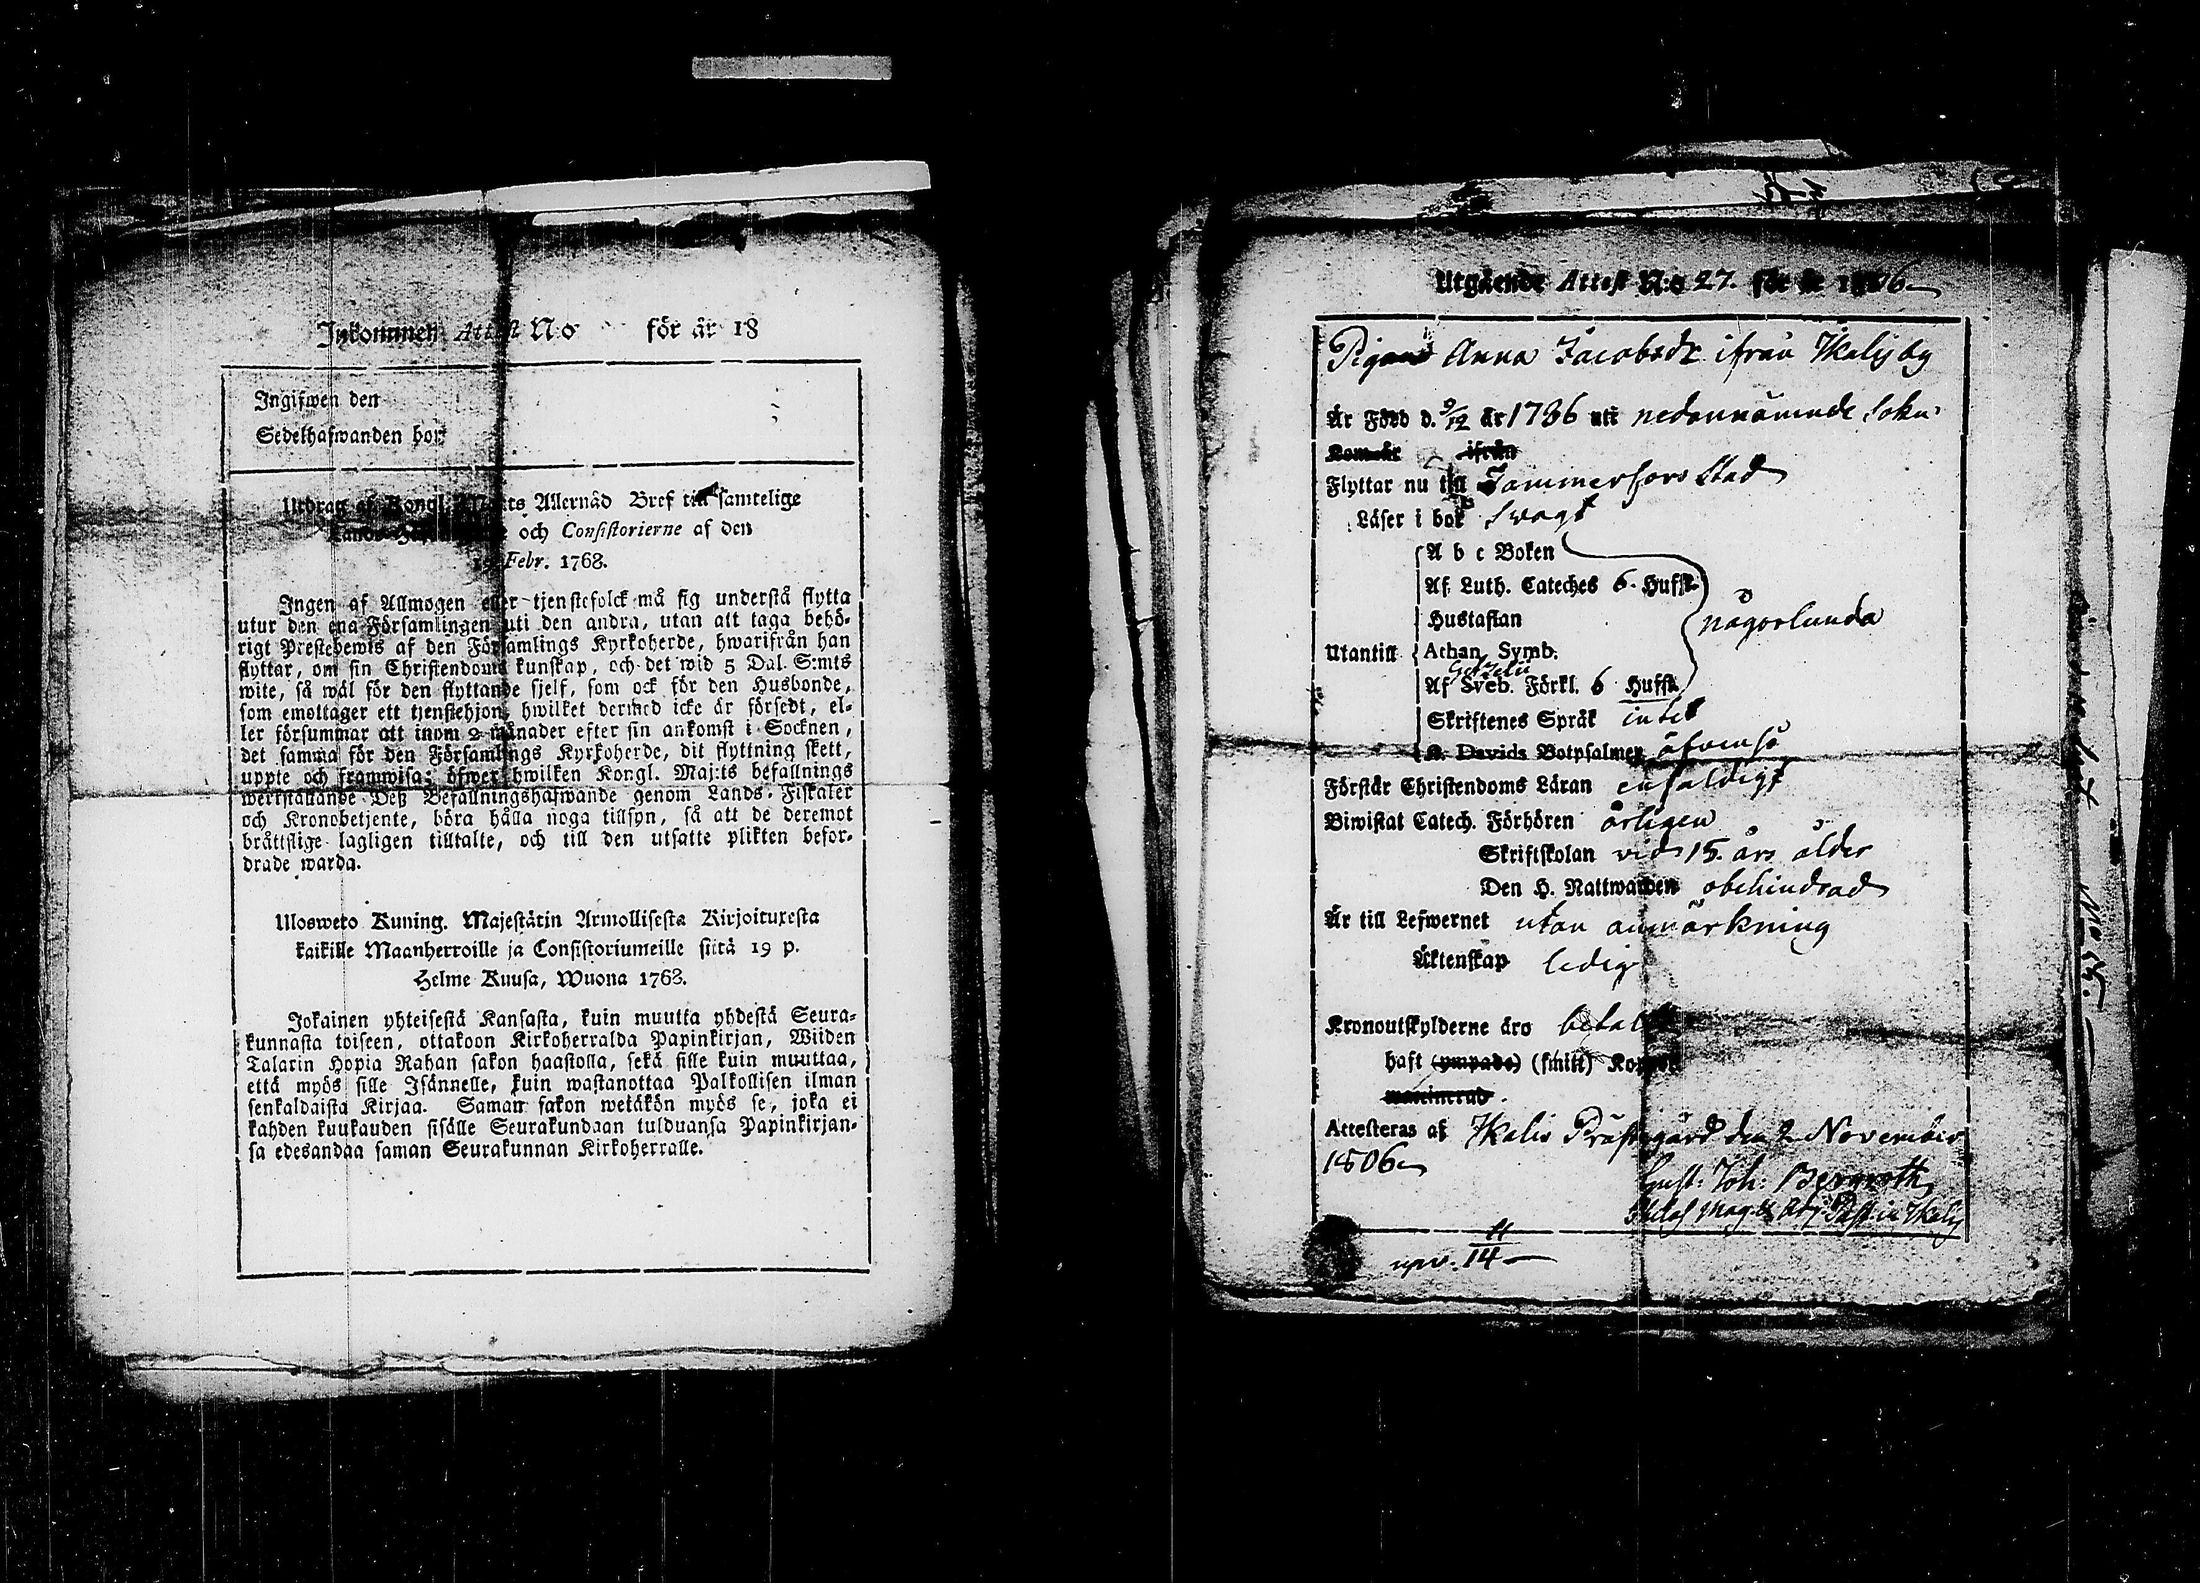 Inkommen Attest N:o för år 18
Ingifwen den
Sedelhafwanden hor
Utdrag af Kongl. Maj:ts Allernåd Bref till samtelige
och Consistorierne af den
19 Febr. 1768.
Ingen af Allmogen eller tjenstefolck må sig understå flytta
utur den ena Församlingen uti den andra, utan att taga behö-
rigt Prestebewis af den Församlings Kyrkoherde, hwarifrån han
flyttar, om sin Christendoms kunskap, och det wid 5 Dal. S:mts
wite, så wäl för den flyttande sjelf, som ock för den Husbonde,
som emottager ett tjenstehjon, hwilket dermed icke är försedt, el-
ler försummar att inom 2 månader efter sin ankomst i Socknen,
det samma för den Församlings Kyrkoherde, dit flyttning skett,
uppte och framwisa; öfwer hwilken Kongl. Maj:ts befallnings
werkställande Deß Befallningshafwande genom Lands-Fiskaler
och Kronobetjente, böra hålla noga tillsyn, så att de deremot
bråttslige lagligen tilltalte, och till den utsatte plikten befor-
drade warda.
Ulosweto Kuning. Majestätin Armollisesta Kirjoituxesta
kaikille Maanherroille ja Consistoriumeille siitä 19 p.
Helme Kuusa, Wuona 1768.
Jokainen yhteisestä Kansasta, kuin muutta yhdestä Seura-
kunnasta toiseen, ottakoon Kirkoherralda Papinkirjan, Wiiden
Talarin Hopia Rahan sakon haastolla, sekä sille kuin muuttaa,
että myös sille Isännelle, kuin wastanottaa Palkollisen ilman
senkaldaista Kirjaa. Saman sakon wetäkön myös se, joka ei
kahden kuukauden sisälle Seurakundaan tulduansa Papinkirjan-
sa edesandaa saman Seurakunnan Kirkoherralle.
Utgående Attest N:o 27. för år 1806
Pigan Anna Jacobsdr ifrån Ikalis by
Är Född d. 9/12 år 1786 uti nedannämnde Sokn
Kom år ifrån
Flyttar nu till Tammerfors Stad
Läser i bok svagt
A b c Boken
Af Luth. Cateches 6. Hufst.
Hustaflan
någorlunda
Utantill Athan. Symb.
Gezelii
Af Sveb. Förkl. 6 Hufst.
Skriftenes Språk intet
K. Davids Botpsalmer äfvenså
Förstår Christendoms Läran enfaldigt
Biwistat Catech. Förhören årligen
Skriftskolan vid 15. års ålder
Den H. Nattwarden obehindrad
Är till Lefwernet utan anmärkning
Äktenskap ledig
Kronoutskylderne äro betalte
haft (ympade) (smitt) Koppor
waccinerad
Attesteras af Ikalis Prästegård den 2 November
1806
Gust: Joh: Bergroth
Adj. Past. in Ikalis
upv. 11/14